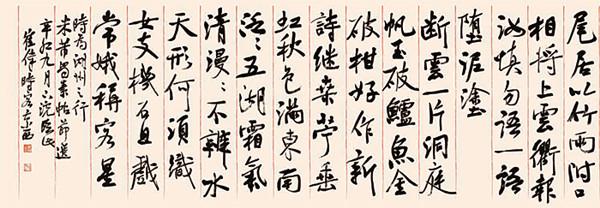 尾居以竹兩附口
相將上雲衢報
汝慎勿語一語
墮泥塗
斷雲一片洞庭
帆玉破鱸魚金
破柑好作新
詩繼桑苧垂
虹秋色滿東南
泛〻五湖霜氣
清漫〻不辨水
天形何須織
女支機石且戲
常娥稱客星
時為湖州之行
米芾蜀素帖節選
辛卯九月
崔偉時客京